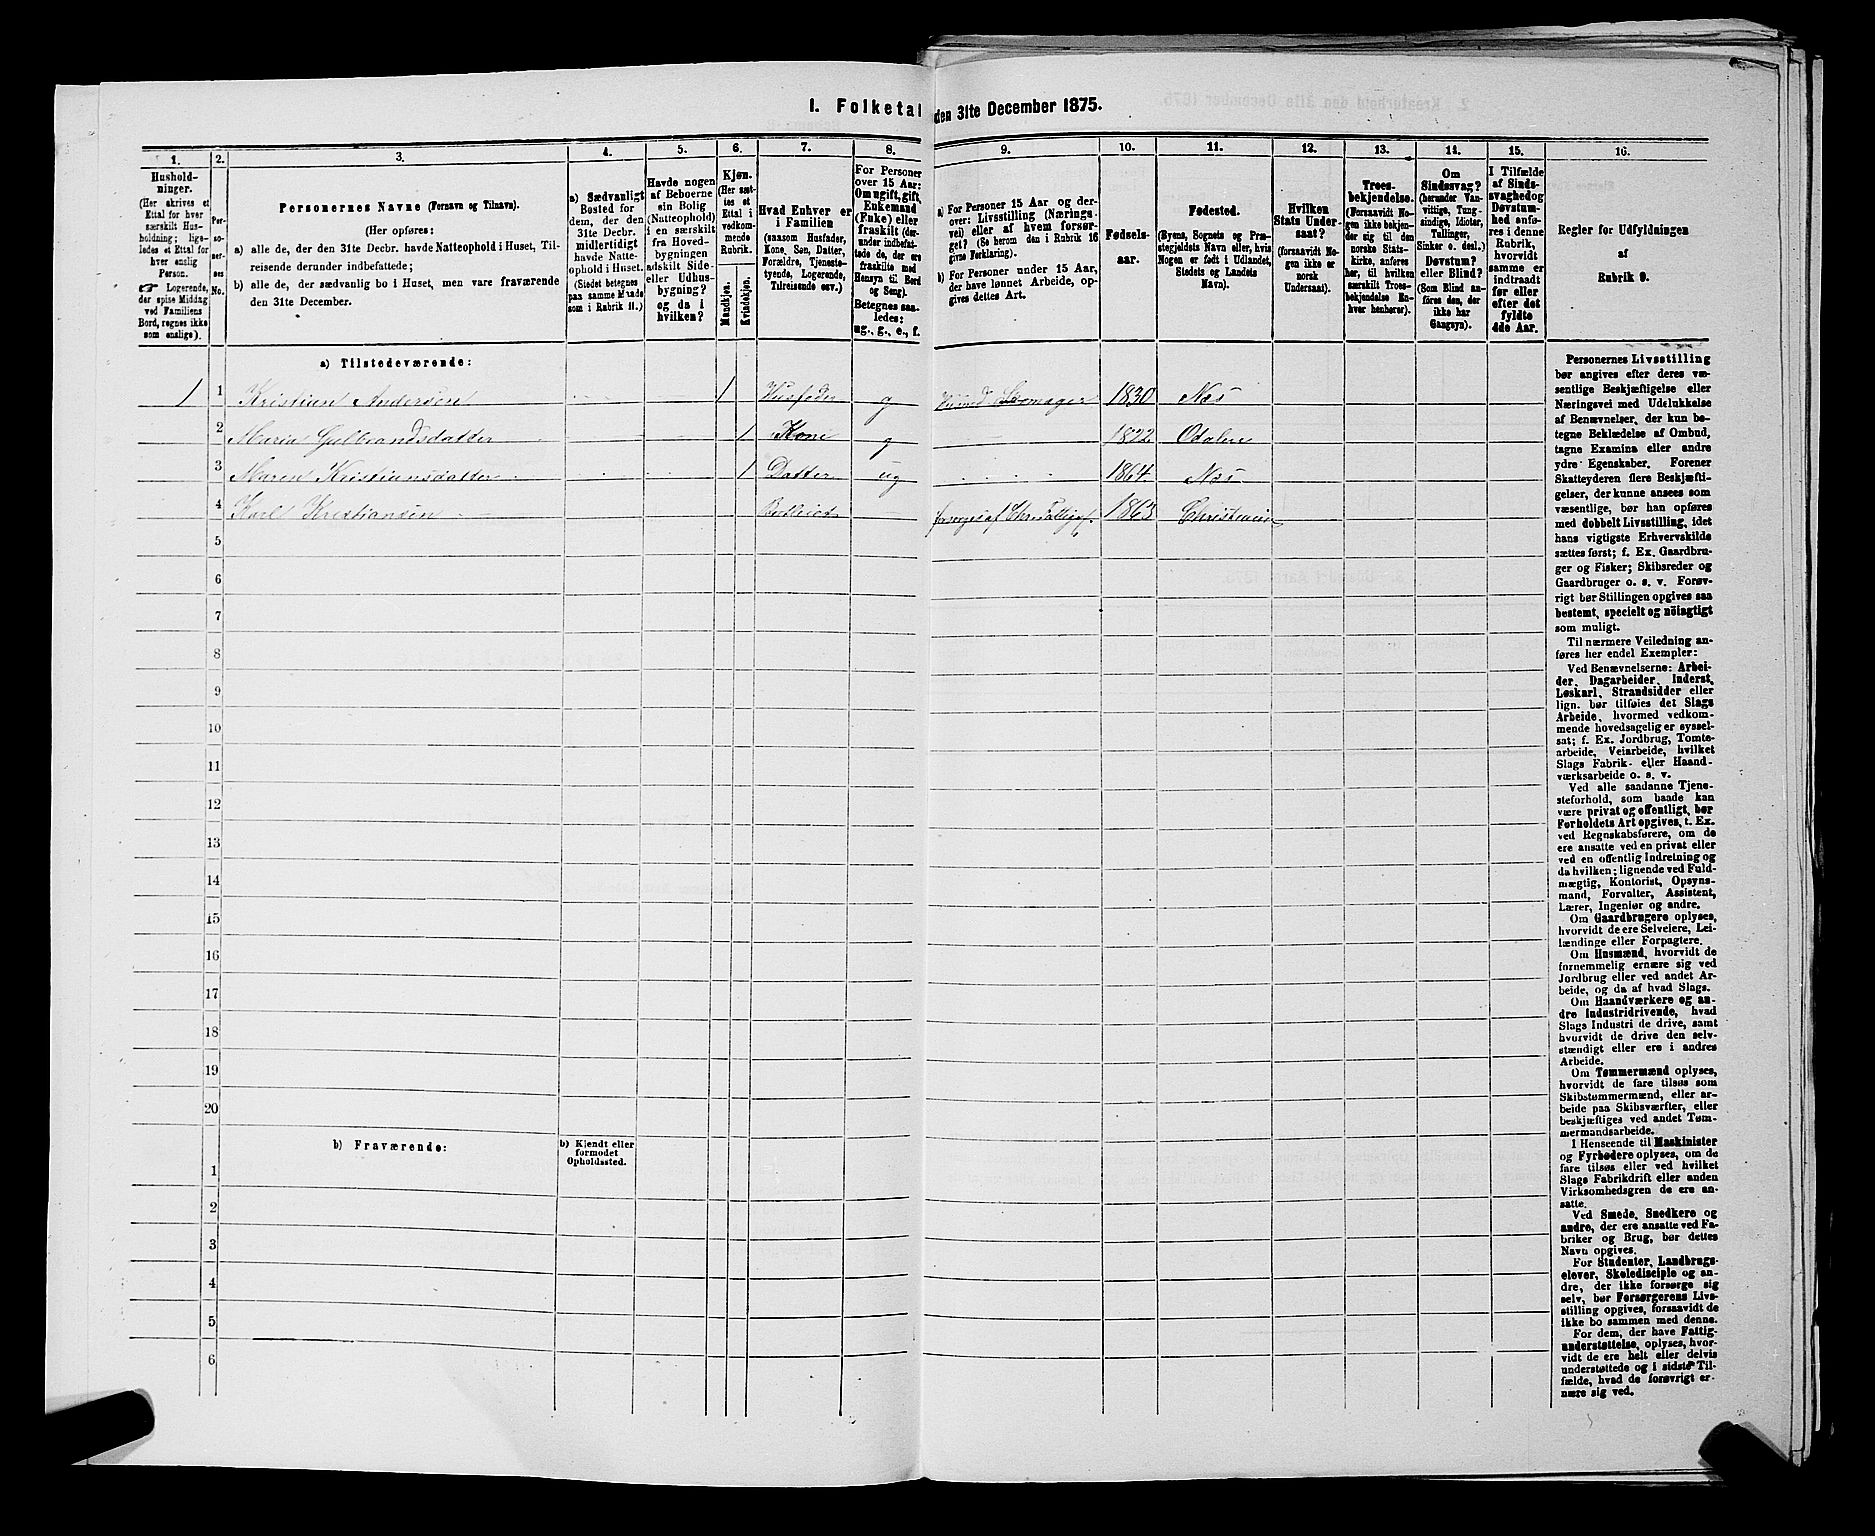 1. Folketal den 31te December 1875.
1. 2. 3. 4. 5. 6. 7. 8. 9. 10. 11. 12. 13. 14. 15. 16.
Hushold-
ninger.
(Her skrives et
Ettal for hver
særskilt Hus-
holdning; lige-
ledes et Ettal for
hver enslig
Person.
Logerende,
der spise Middag
ved Familiens
Bord, regnes ikke
som enslige).
Per-
so-
ner-
nes
No.
Personernes Navne (Fornavn og Tilnavn).
(Her opføres:
a) alle de, der den 31te Decbr. havde Natteophold i Huset, Til-
reisende derunder indbefattede;
b) alle de, der sædvanlig bo i Huset, men vare fraværende
den 31te December.
a) Sædvanligt
Bosted for
dem, der den
31te Decbr.
midlertidigt
havde Natte-
ophold i Huset.
(Stedet betegnes
paa samme Maade
som i Rubrik 11.)
Havde nogen
af Beboerne
sin Bolig
(Natteophold)
i en særskilt
fra Hoved-
bygningen
adskilt Side-
eller Udhus-
bygning?
og da i
hvilken?
Kjøn.
(Her sæt-
tes et
Ettal i
vedkom-
mende
Rubrik.
Mandkjøn.
Kvindekjøn.
Hvad Enhver er
i Familien
(saasom Husfader,
Kone, Søn, Datter,
Forældre, Tjeneste-
tyende, Logerende,
Tilreisende osv.)
For Personer
over 15 Aar:
Om ugift, gift,
Enkemand
(Enke) eller
fraskilt (der-
under indbefat-
tede de, der ere
fraskilte med
Hensyn til Bord
og Seng).
Betegnes saa-
ledes:
ug., g., e., f.
a) For Personer 15 Aar og der-
over: Livsstilling (Nærings-
vei) eller af hvem forsør-
get? (Se herom den i Rubrik 16
givne Forklaring).
b) For Personer under 15 Aar,
der have lønnet Arbeide, op-
gives dettes Art.
Fødsels-
aar.
Fødested.
(Byens, Sognets og Præ-
stegjeldets Navn eller, hvis
Nogen er født i Udlandet,
Stedets og Landets
Navn).
Hvilken
Stats Under-
saat?
(forsaavidt No-
gen ikke er
norsk
Undersaat).
Troes-
bekjendelse.
(Forsaavidt No-
gen ikke bekjen-
der sig til den
norske Stats-
kirke, anføres
her, til hvilken
særskilt Troes-
bekjendelse En-
hver henhører).
Om
Sindssvag?
(herunder Van-
vittige, Tung-
sindige, Idioter,
Tullinger,
Sinker o. desl.)
Døvstum?
eller Blind?
(Som Blind an-
føres den, der
ikke har
Gangsyn).
I Tilfælde
af Sinds-
svaghed og
Døvstum-
hed anfø-
res i denne
Rubrik,
hvorvidt
samme er
indtraadt
før eller
efter det
fyldte
4de Aar.
Regler for Udfyldningen
af
Rubrik 9.
a) Tilstedeværende:
1 1 Kristian Andersen 1 Husfader g Skomager 1830 Næs
2 Maria Gulbrandsdatter 1 Kone g 1822 Odalen
3 Maren Kristiansdatter 1 Datter ug 1864 Næs
4 Karl Kristiansen 1863 Christiania
5
6
7
8
9
10
11
12
13
14
15
16
17
18
19
20
b) Fraværende:
b) Kjendt eller
formodet
Opholdssted.
1
2
3
4
5
6
Personernes Livsstilling
bør angives efter deres væ-
sentlige Beskjæftigelse eller
Næringsvei med Udelukkelse
af Benævnelser, der kun be-
tegne Beklædelse af Ombud,
tagne Examina eller andre
ydre Egenskaber. Forener
Skatteyderen flere Beskjæfti-
gelser, der kunne ansees som
væsentlige, bør han opføres
med dobbelt Livsstilling, idet
hans vigtigste Erhvervskilde
sættes først; f. Ex. Gaardbru-
ger og Fisker; Skibsreder og
Gaardbruger o. s. v. Forøv-
rigt bør Stillingen opgives saa
bestemt, specielt og nöiagtigt
som muligt.
Til nærmere Veiledning an-
føres her endel Exempler:
Ved Benævnelserne: Arbei-
der, Dagarbeider, Inderst,
Løskarl, Strandsidder eller
lign. bør tilføies det Slags
Arbeide, hvormed vedkom-
mende hovedsagelig er syssel-
sat; f. Ex. Jordbrug, Tomte-
arbeide, Veiarbeide, hvilket
Slags Fabrik- eller Haand-
værksarbeide o. s. v.
Ved alle saadanne Tjene-
steforhold, som baade kan
være privat og offentligt, bør
Forholdets Art opgives, t. Ex.
ved Regnskabsførere, om de
ere ansatte ved en privat eller
ved en offentlig Indretning og
da hvilken; lignende ved Fuld-
mægtig, Kontorist, Opsyns-
mand, Forvalter, Assistent,
Lærer, Ingeniør og andre.
Om Gaardbrugere oplyses,
hvorvidt de ere Selveiere, Lei-
lændinge eller Forpagtere.
Om Husmænd, hvorvidt de
fornemmelig ernære sig ved
Jordbrug eller ved andet Ar-
beide, og da af hvad Slags.
Om Haandværkere og an-
dre Industridrivende, hvad
Slags Industri de drive, samt
hvorvidt de drive den selv-
stændigt eller ere i andres
Arbeide.
Om Tømmermænd oplyses,
hvorvidt de fare tilsøs som
Skibstømmermænd, eller ar-
beide paa Skibsværfter, eller
beskjæftiges ved andet Tøm-
mermandsarbeide.
I Henseende til Maskinister
og Fyrbødere oplyses, om de
fare tilsøs eller ved hvilket
Slags Fabrikdrift eller anden
Virksomhedsgren de ere an-
satte.
Ved Smede, Snedkere og
andre, der ere ansatte ved Fa-
briker og Brug, bør dettes
Navn opgives.
For Studenter, Landbrugs-
elever, Skoledisciple og an-
dre, der ikke forsørge sig
selv, bør Forsørgerens Livs-
stilling opgives, forsaavidt de
ikke bo sammen med denne.
For dem, der have Fattig-
understøttelse, oplyses, hvor-
vidt de ere helt eller delvis
understøttede og i sidste Til-
fælde, hvad de forøvrigt er-
nære sig ved.